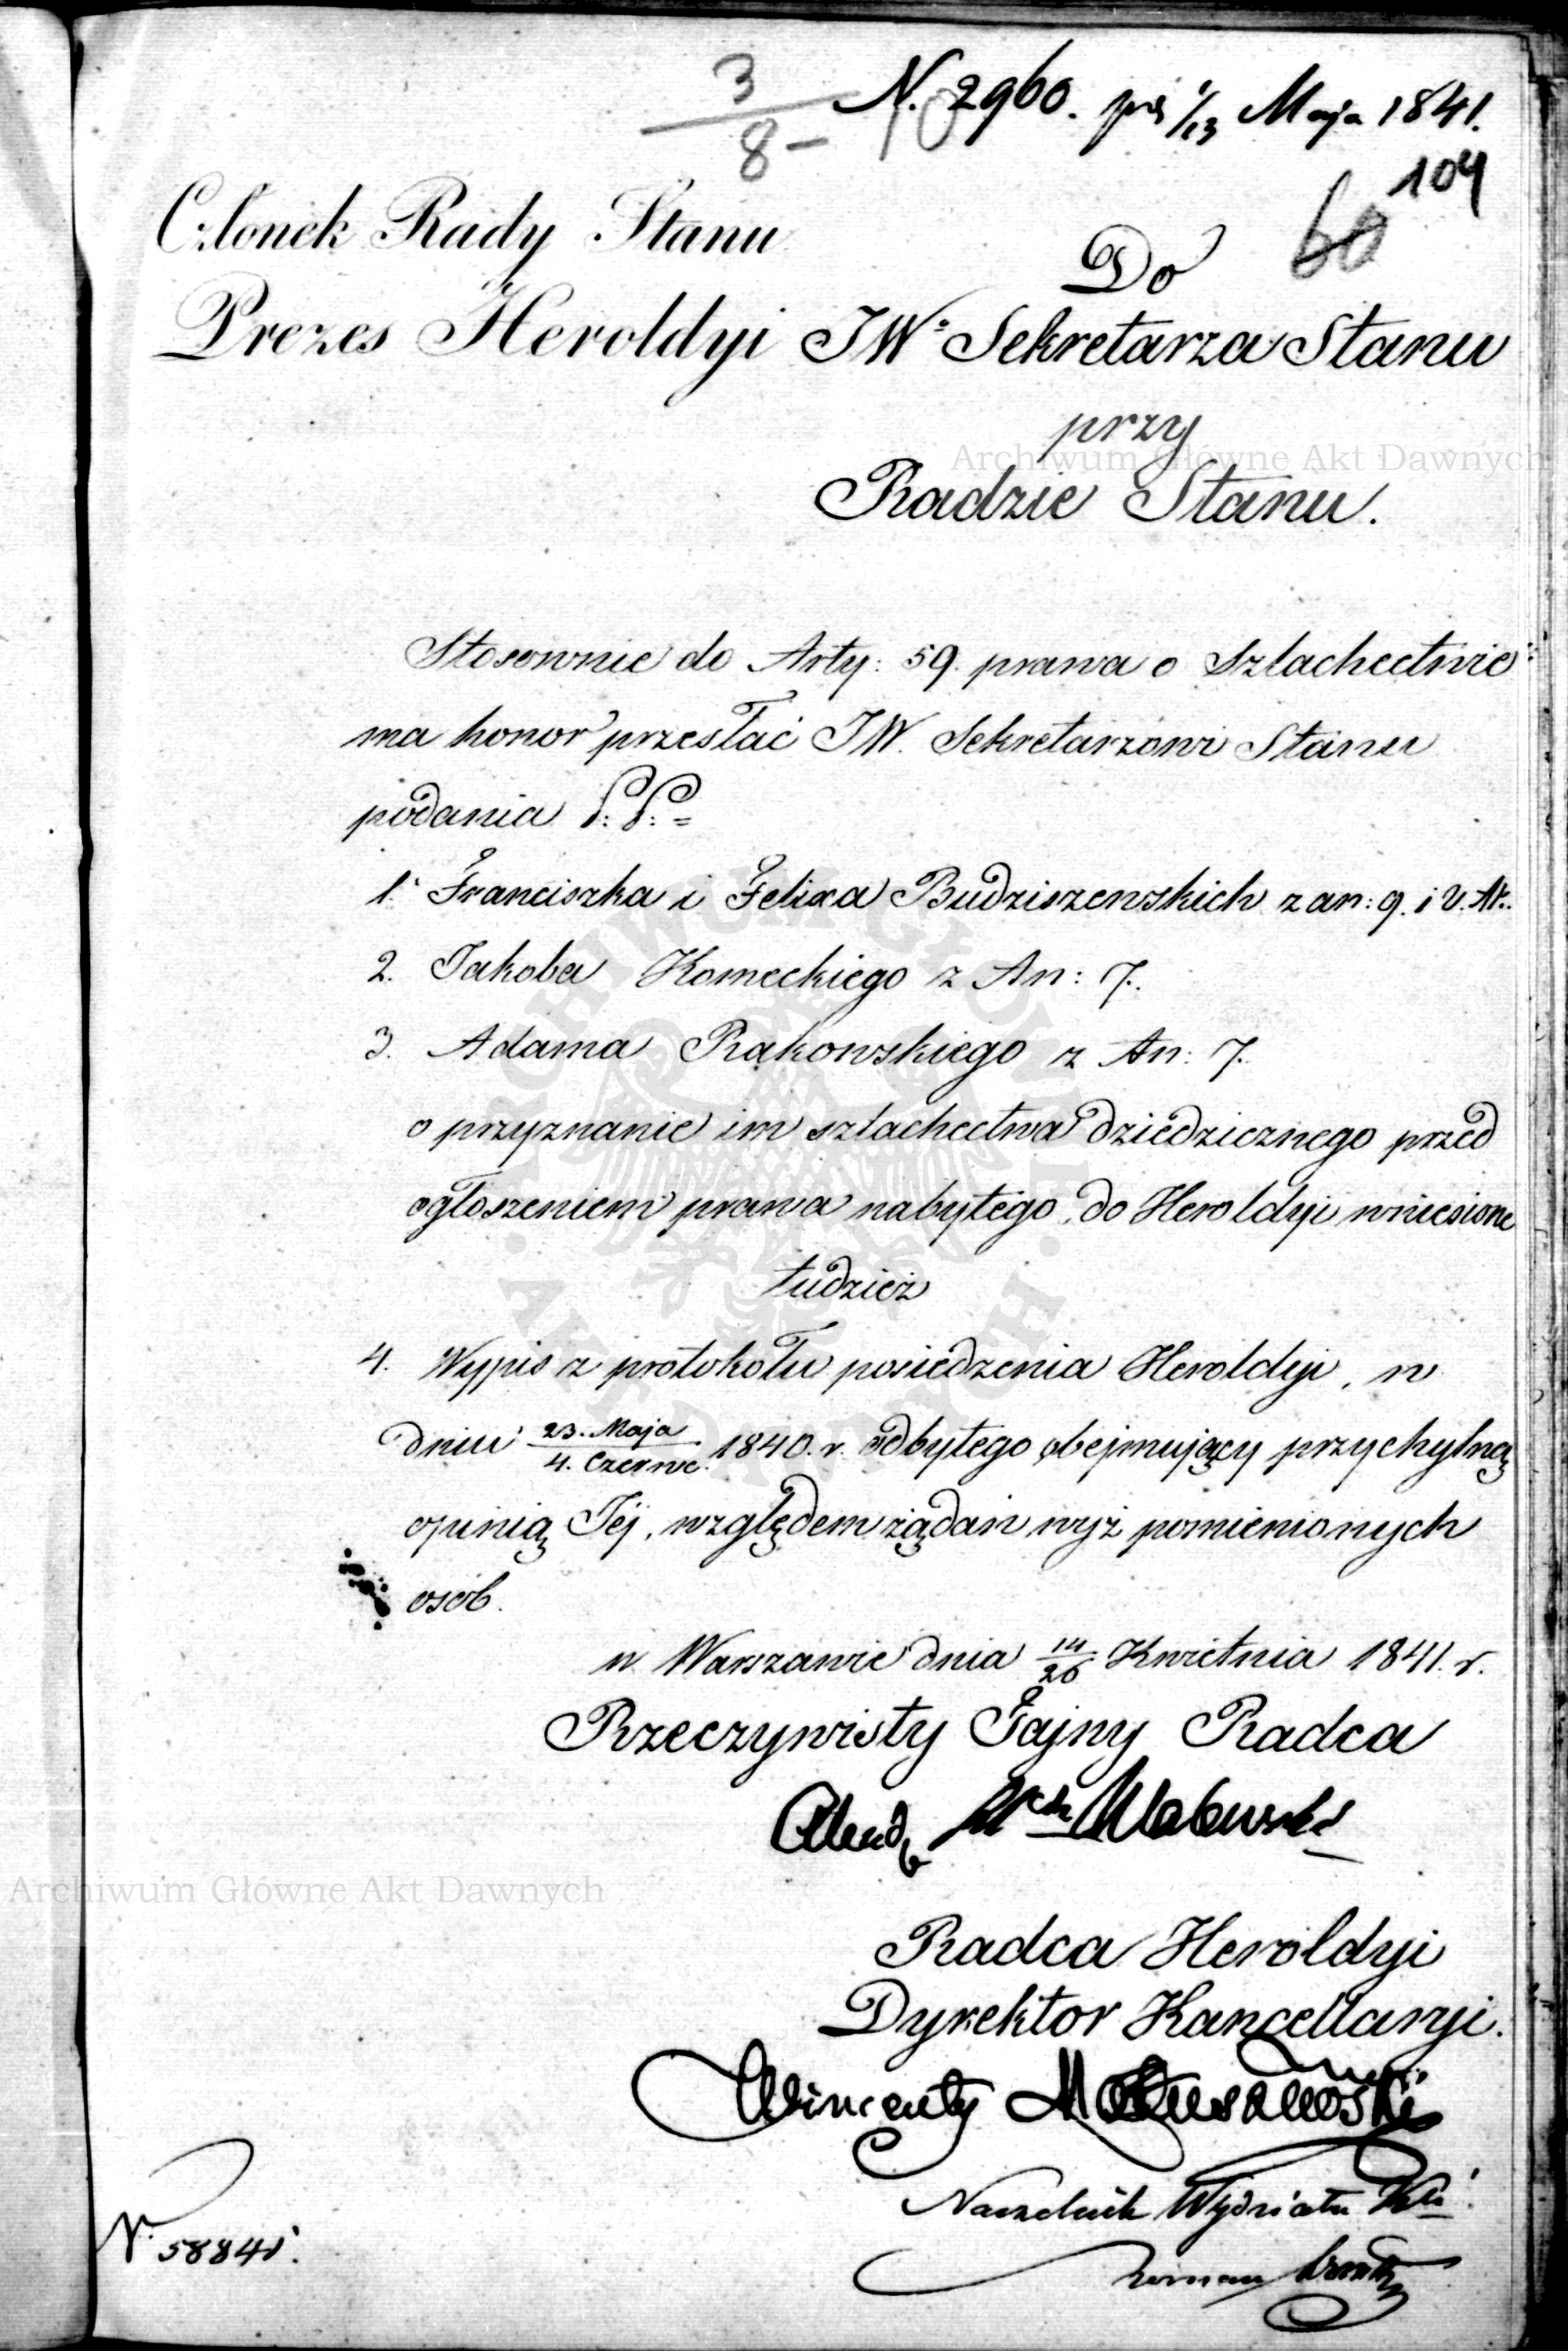 3
8 –
N. 2960. prs 1/13 Maja 1841.
104
60
Członek Rady Stanu
Prezes Heroldyi
Do
JWº Sekretarza Stanu
przy
Radzie Stanu.
Archiwum Główne Akt Dawnych
Stosownie do Arty: 59. prawa o Szlachectwie
ma honor przesłać JW. Sekretarzowi Stanu
podania P: P: =
1. Franciszka i Felixa Budziszewskich z an: 9.
2. Jakoba Komeckiego z An: 7.
3. Adama Rakowskiego z An: 7.
o przyznanie im szlachectwa dziedzicznego przed
ogłoszeniem prawa nabytego, do Heroldyi wniesione
tudzież
4. Wypis z protokołu posiedzenia Heroldyi, w
dniu 23. Maja / 4. Czerwc. 1840. r. odbytego, obejmujący przychylną
opinią Jéj, względem żądań wyż pomienionych
osób.
w Warszawie dnia 14/26 Kwietnia 1841. r.
Rzeczywisty Tajny Radca
Archiwum Główne Akt Dawnych
Radca Heroldyi
Dyrektor Kancellaryi.
Wincenty
Naczelnik Wydziału
N. 58841.
ARCHIWUM GŁÓWNE · AKT DAWNYCH ·